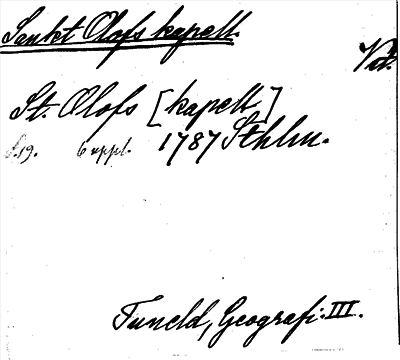 Sankt Olofs kapell.
Vb.
St. Olofs [kapell]
s. 19. 6 uppl. 1787 Sthlm.
Tuneld, Geografi: III.